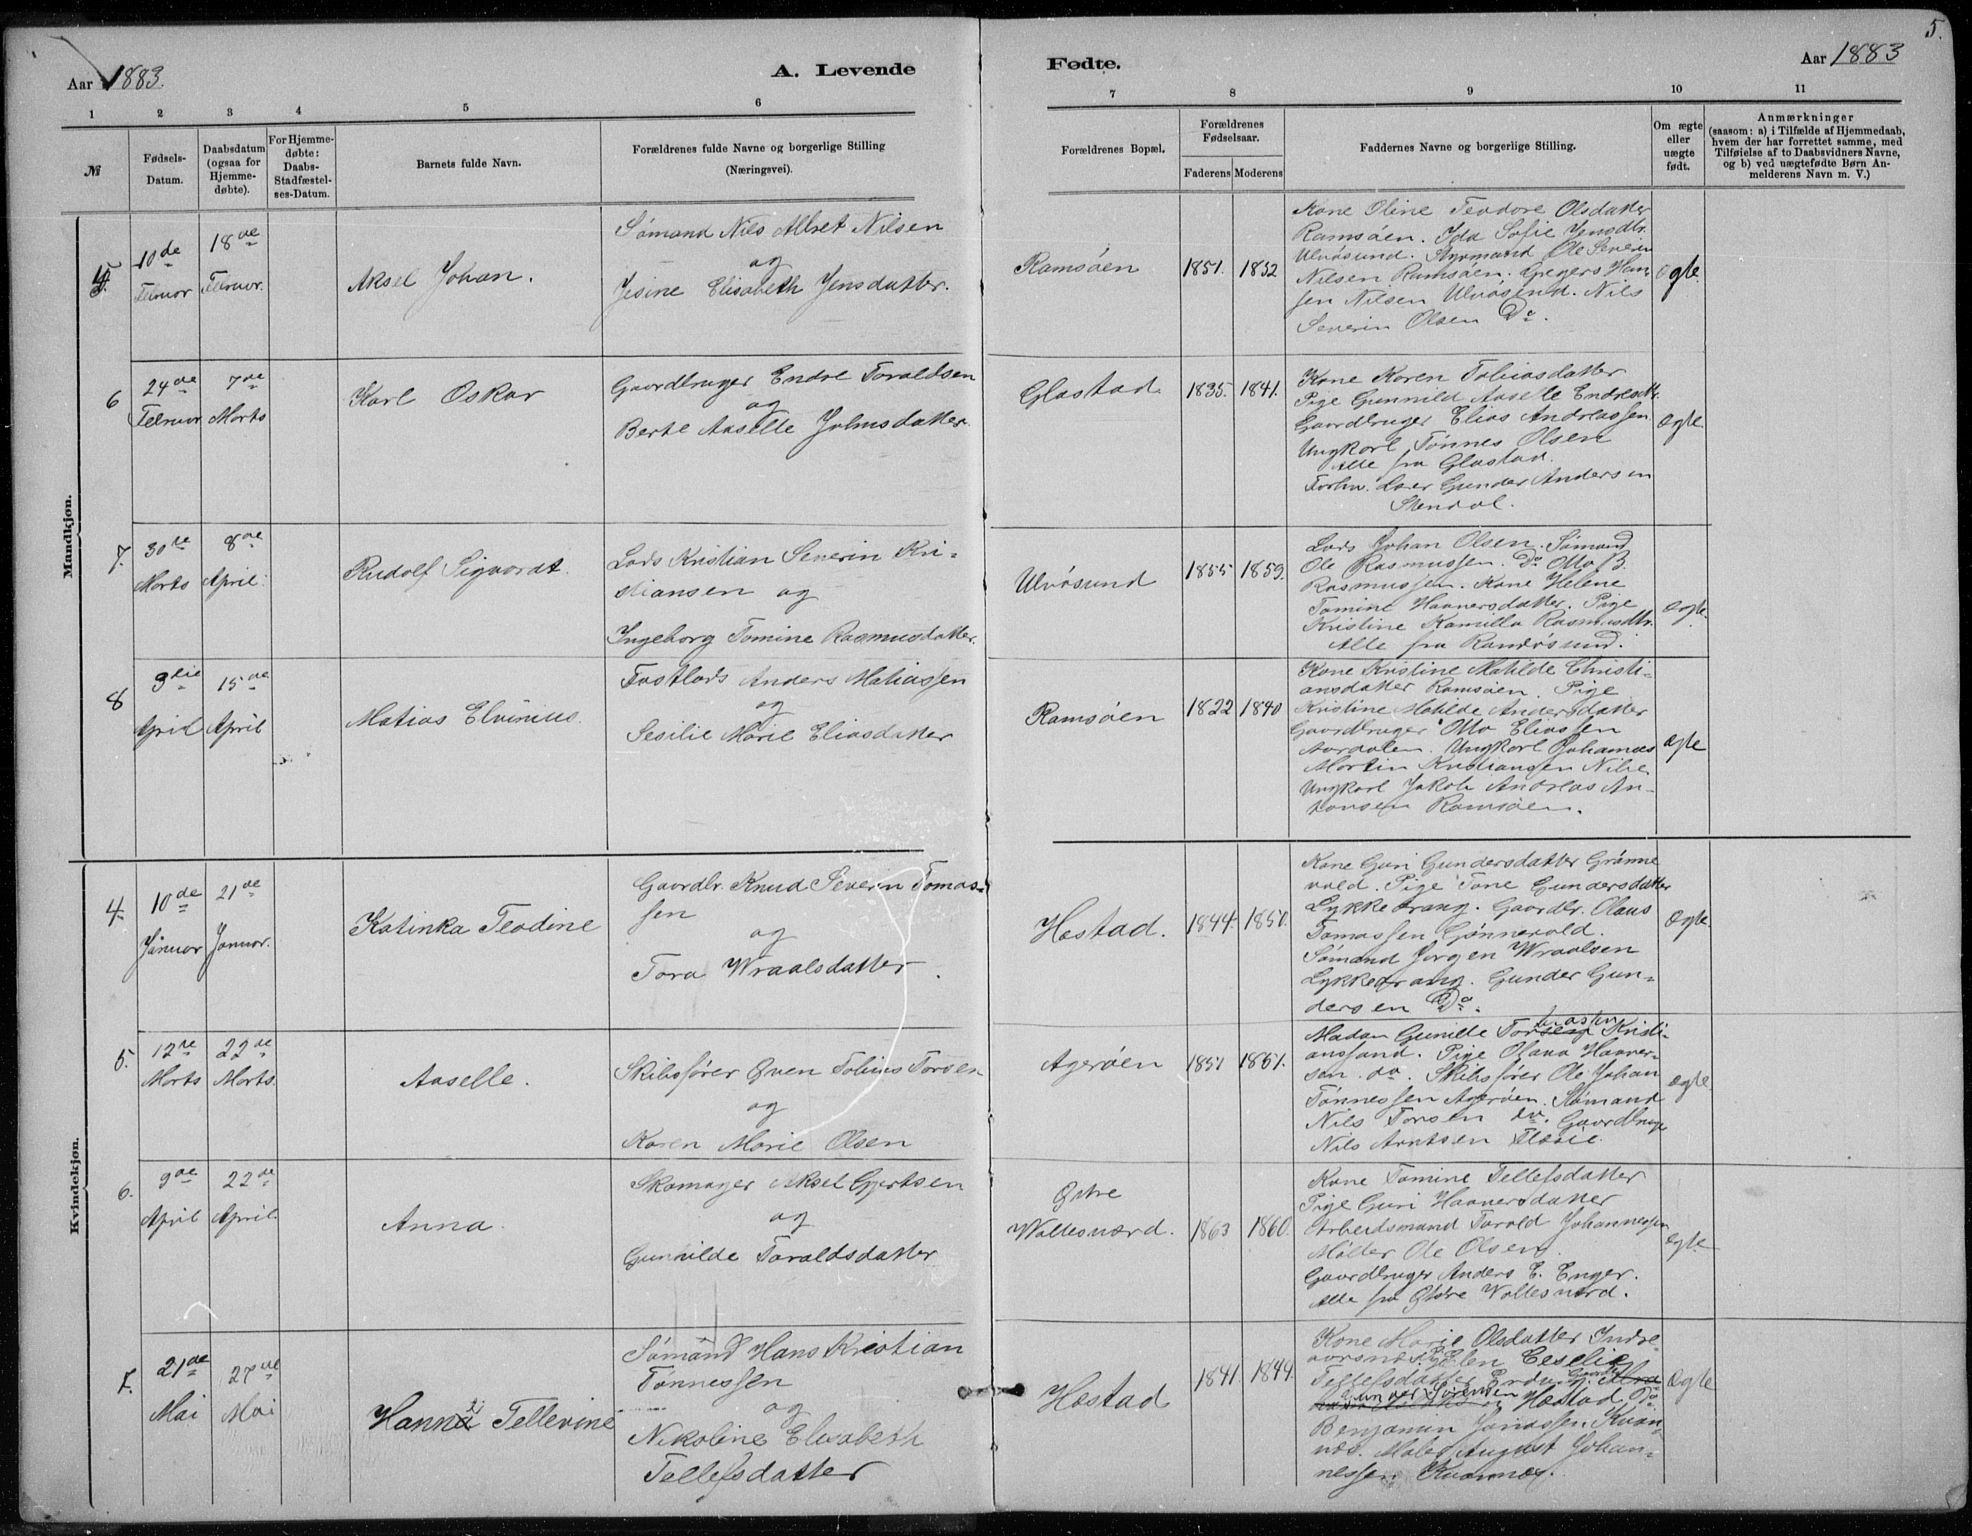 5.
Aar 1883.
A. Levende
Fødte.
Aar 1883
1 2 3 4 5 6 7 8 9 10 11
№
Fødsels-
Datum.
Daabsdatum
(ogsaa for
Hjemme-
døbte).
For Hjemme-
døbte:
Daabs-
Stadfæstel-
ses-Datum.
Barnets fulde Navn.
Forældrenes fulde Navne og borgerlige Stilling
(Næringsvei).
Forældrenes Bopæl.
Forældrenes
Fødselsaar.
Faderens Moderens
Faddernes Navne og borgerlige Stilling
Om ægte
eller
uægte
født.
Anmærkninger
(saasom: a) i Tilfælde af Hjemmedaab,
hvem der har forrettet samme, med
Tilføielse af to Daabsvidners Navne,
og b) ved uægtefødte Børn An-
melderens Navn m. V.)
Mandkjøn.
5.
10de
Februar
18de
Februar.
Aksel Johan.
Sømand Nils Albret Nilsen
og
Jesine Elisabeth Jensdatter.
Ramsøen
1851. 1852
Kone Oline Teodore Olsdatter
Ramsøen. Ida Sofie Jensdtr.
Ulvøsund. Styrmand Ole Severin
Nilsen Ramsøen. Gregers Han
sen Nilsen Ulvøsund. Nils
Severin Olsen Do.
ægte.
6
24de
Februar
7de
Marts
Karl Oskar
Gaardbruger Endre Taraldsen
og
Berte Aaselle Johnsdatter.
Glastad
1835. 1841.
Kone Karen Tobiasdatter
Pige Gunnild Aaselle Endresdtr.
Gaardbruger Elias Andreassen
Ungkarl Tønnes Olsen
Alle fra Glastad.
Forhv. Lærer Gunder Andersen
Stendal.
ægte.
7.
30te
Marts
8de
April.
Rudolf Sigvardt.
Lods Kristian Severin Kri-
stiansen og
Ingeborg Tomine Rasmusdatter.
Ulvøsund
1855 1859.
Lods Johan Olsen. Sømand
Ole Rasmussen. Do Otto B.
Rasmussen. Kone Helene
Tomine Haaversdatter. Pige
Kristine Kamilla Rasmusdtr.
Alle fra Randøsund.
ægte.
8
9die
April
15de
April
Matias Elvinius.
Fastlods Anders Matiassen
og
Sesilie Marie Eliasdatter
Ramsøen
1822 1840
Kone Kristine Matilde Christi-
ansdatter Ramsøen. Pige
Kristine Matilde Andersdatter
Gaardbruger Otto Eliassen
Aardalen. Ungkarl Johannes
Martin Kristiansen Nibe
Ungkarl Jakob Andreas An-
tonsen Ramsøen.
ægte
Kvindekjøn.
4.
10de
Januar
21de
Januar.
Katinka Teodine
Gaardbr. Knud Severin Tomas-
sen
og
Tora Wraalsdatter.
Hæstad.
1844. 1850.
Kone Guri Gundersdatter Grønne
vold. Pige Tone Gundersdatter
Lykkedrang. Gaardbr. Olaus
Tomassen Grønnevold.
Sømand Jørgen Wraalsen
Lykkedrang. Gunder Gun-
dersen Do.
ægte.
5.
12te
Marts
22de
Marts.
Aaselle.
Skibsfører Oven Tobias Torsen
og
Karen Marie Olsen
Agerøen
1851 1861.
Madam Gunille Kristi-
anssand. Pige Olava Haaver-
sen do. Skibsfører Ole Johan
Tønnessen Agerøen. Sømand
Nils Torsen do. Gaardbruger
Nils Arntsen
ægte.
6.
9de
April
22de
April.
Anna.
Skomager Aksel Gjertsen
og
Gunhilde Taraldsdatter
Østre
Wallesværd.
1863 1860.
Kone Tomine Tellefsdatter
Pige Guri Haaversdatter
Arbeidsmand Tarald Johannessen
Møller Ole Olsen.
Gaardbruger Anders E. Enger.
Alle fra Østre Wallesværd.
ægte.
7.
21de
Mai
27de
Mai
Hanna Tellevine
Sømand Hans Kristian
Tønnessen
og
Nikoline Elisabeth
Tellefsdatter
Hæstad
1841. 1844.
Kone Marie Olsdatter Indre
Pige Elen Ceselie
Tellefsdatter
Gunder Sørensen Hæstad Do.
Benjamin Jonassen Kvan-
næs. Maler August Johan-
nessen Kvannæs.
ægte